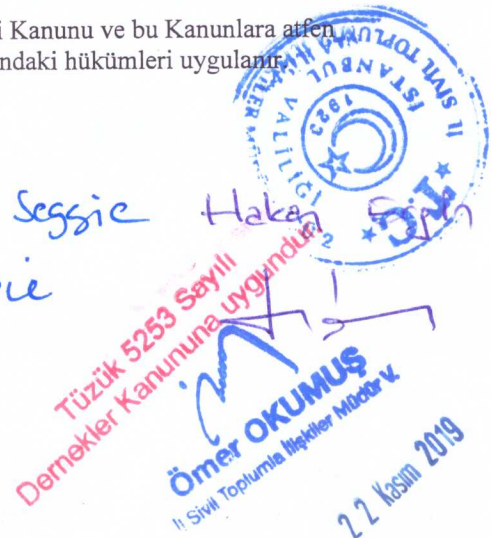 i Kanunu ve bu Kanunlara atfen
ındaki hükümleri uygulanır.
T.C.
İSTANBUL VALİLİĞİ
İL SİVİL TOPLUMLA İLİŞKİLER
1923
Seggie Hakan
Tüzük 5253 Sayılı
Dernekler Kanununa uygundur.
Ömer OKUMUŞ
İl Sivil Toplumla İlişkiler Müdür V.
22 Kasım 2019